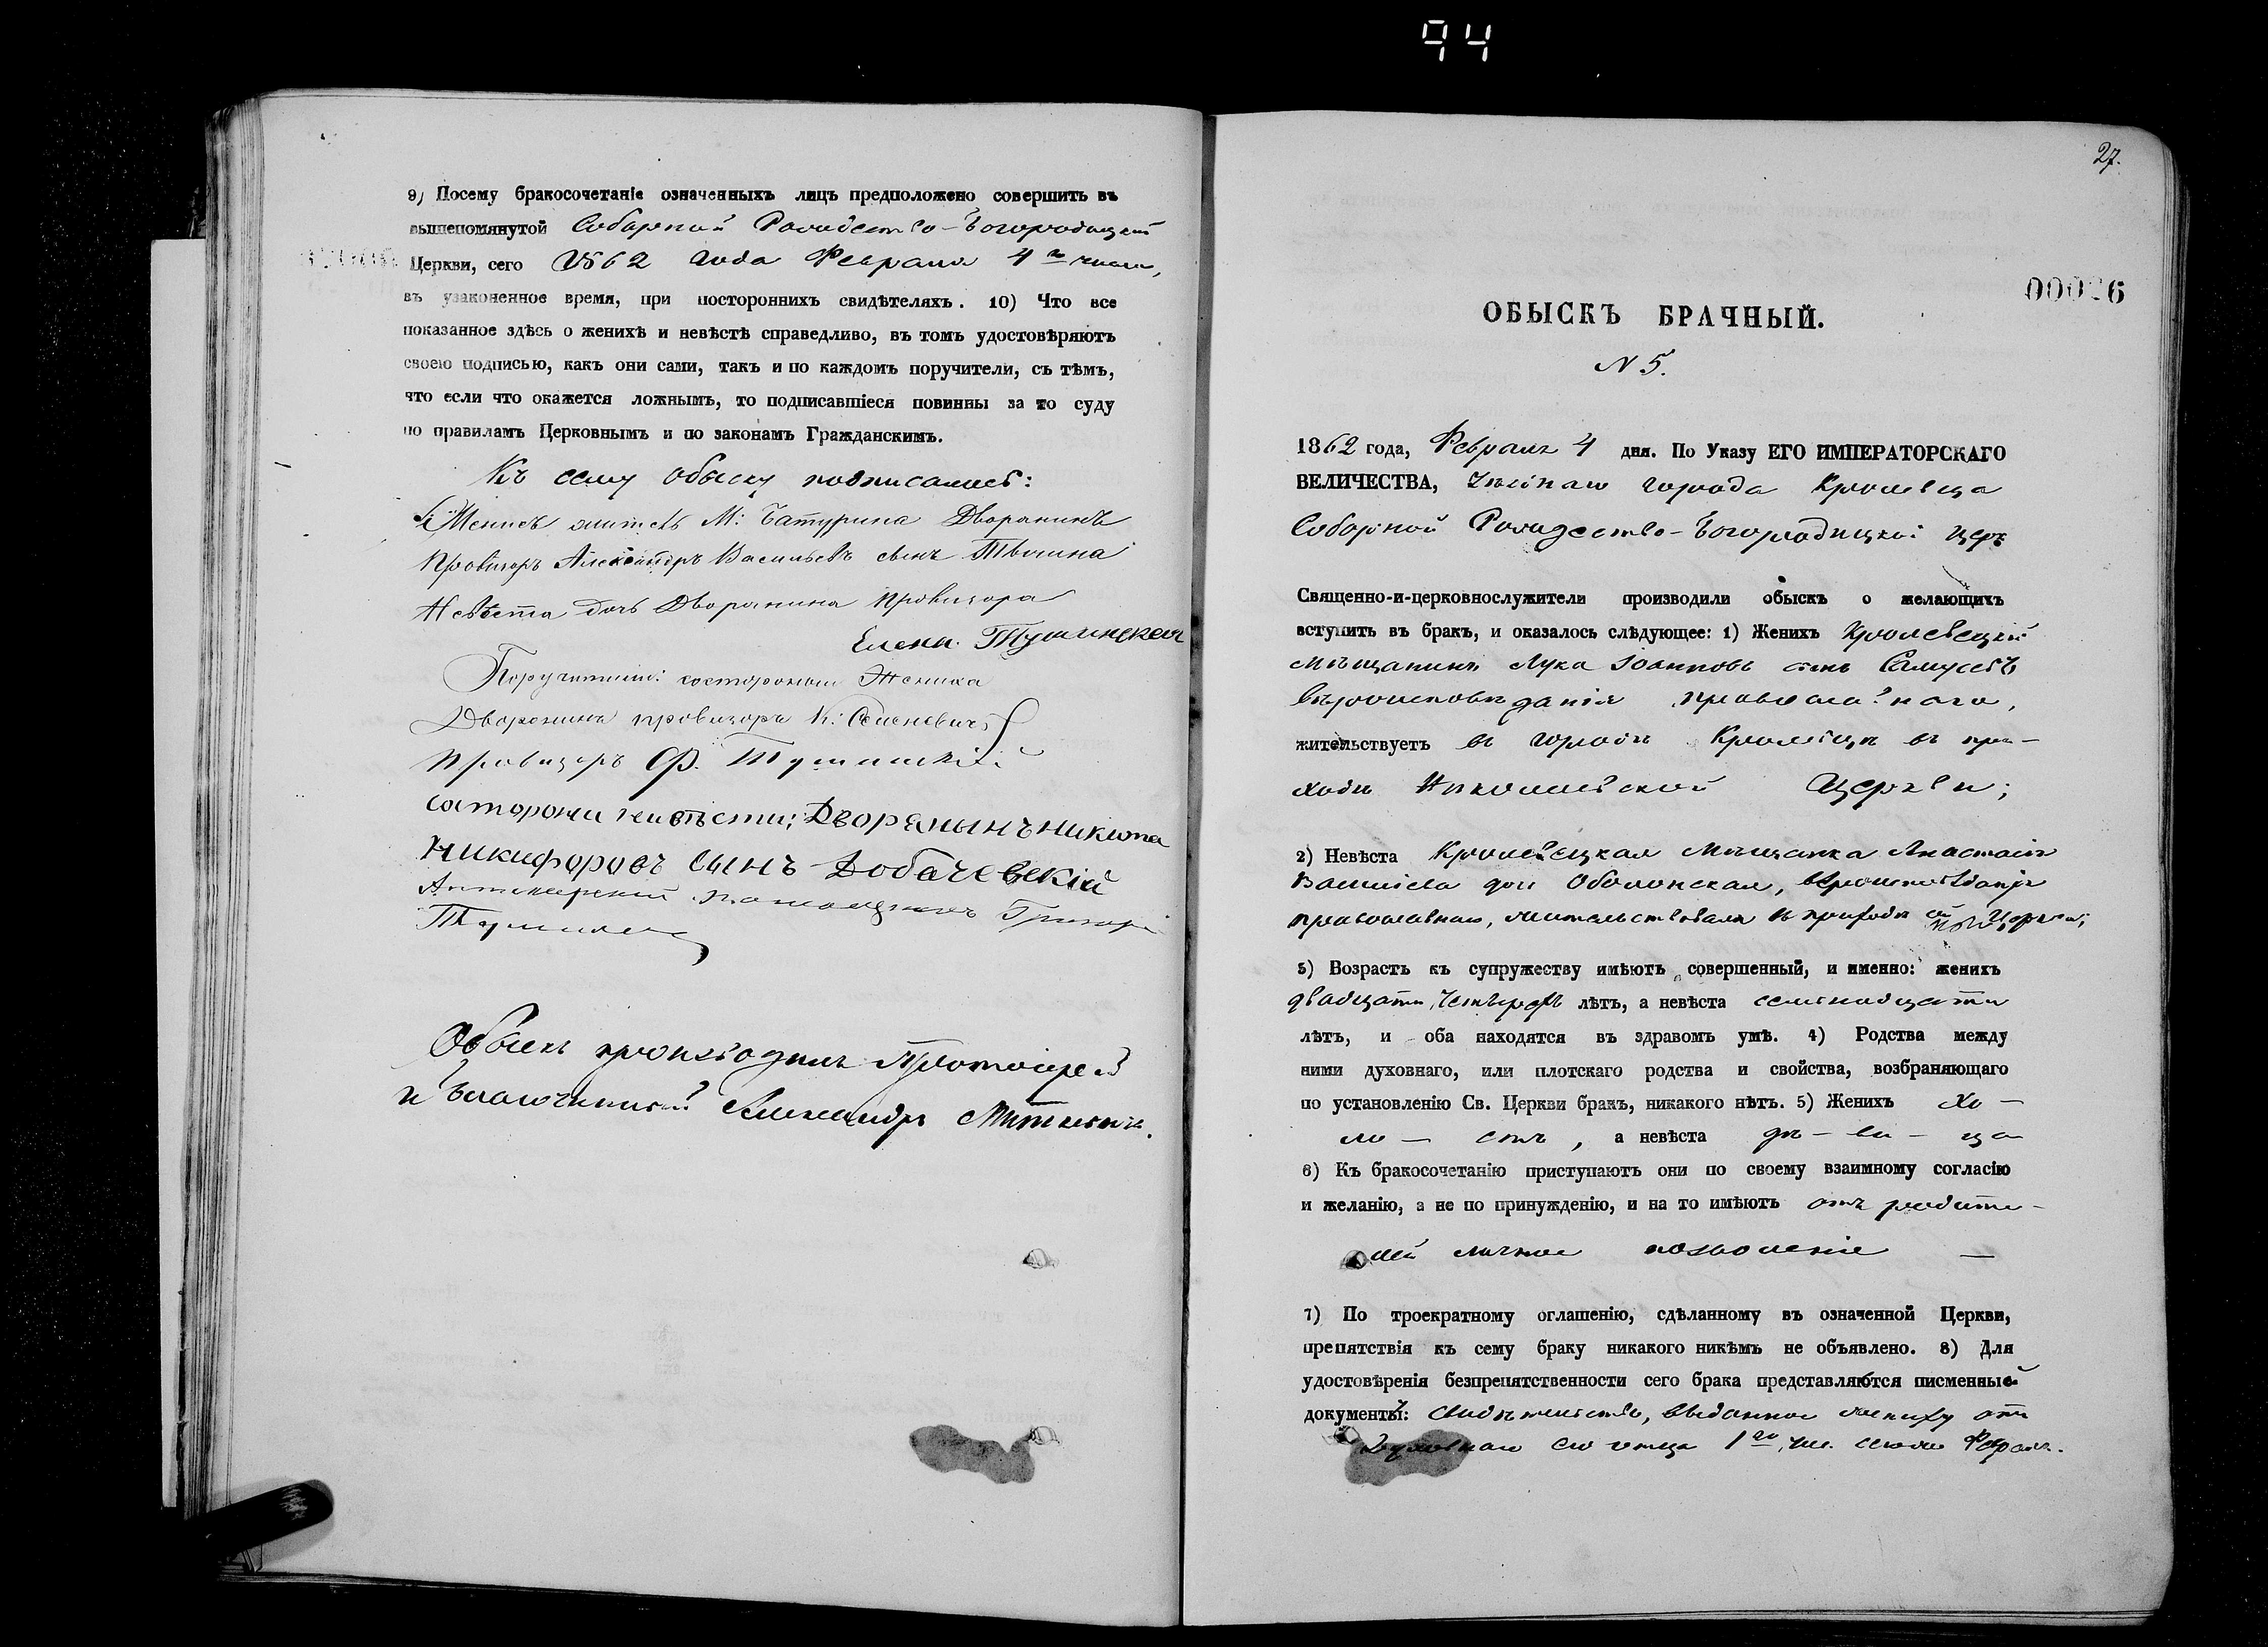 94
9) Посему бракосочетаніе означенныхъ лицъ предположено совершить въ
вышепомянутой Соборной Рождество-Богородицкой
Церкви, сего 1862 года Февраля 4го числа,
въ узаконенное время, при постороннихъ свидѣтеляхъ. 10) Что все
показанное здѣсь о женихѣ и невѣстѣ справедливо, въ томъ удостовѣряютъ
своею подписью, какъ они сами, такъ и по каждомъ поручители, съ тѣмъ,
что если что окажется ложнымъ, то подписавшіеся повинны за то суду
по правиламъ Церковнымъ и по законамъ Гражданскимъ.
Къ сему обыску подписались:
Женихъ житель М: Батурина Дворянинъ
Провизоръ Александръ Васильевъ сынъ
Невѣста дочь Дворянина Провизора
Елена Тушинская
Поручители: со стороны Жениха
Дворянинъ провизоръ К: Семеневичъ
Провизоръ Ф. Тушинскій
со стороны невѣсты: Дворянынъ Никита
Никифоровъ Сынъ Добачевскій
Аптекарскій помощникъ Григорій
Обыскъ производилъ Протоіерей
и Благочинный Александръ
27.
00026
ОБЫСКЪ БРАЧНЫЙ.
N 5.
1862 года, Февраля 4 дня. По Указу ЕГО ИМПЕРАТОРСКАГО
ВЕЛИЧЕСТВА, города Кролевца
Соборной Рождество-Богородицкой церк
Священно-и-церковнослужители производили обыскъ о желающихъ
вступить въ бракъ, и оказалось слѣдующее: 1) Женихъ Кролевецкій
мѣщанинъ Лука Іоанновъ сынъ Самусь
вѣроисповѣданія православнаго,
жительствуетъ въ городѣ Кролевцѣ въ при-
ходѣ Николаевской Церкви;
2) Невѣста Кролевецкая Мѣщанка Анастасія
Васильева дочь Оболонская, вѣроисповѣданія
православнаго, жительствовала въ приходѣ Церкви;
3) Возрастъ къ супружеству имѣютъ совершенный, и именно: женихъ
двадцати четырехъ лѣтъ, а невѣста семнадцати
лѣтъ, и оба находятся въ здравомъ умѣ. 4) Родства между
ними духовнаго, или плотскаго родства и свойства, возбраняющаго
по установленію Св. Церкви бракъ, никакого нѣтъ. 5) Женихъ хо-
ло- стъ, а невѣста дѣ-ви-ца
6) Къ бракосочетанію приступаютъ они по своему взаимному согласію
и желанію, а не по принужденію, и на то имѣютъ отъ родите-
лей личное позволеніе
7) По троекратному оглашенію, сдѣланному въ означенной Церкви,
препятствія къ сему браку никакого никѣмъ не объявлено. 8) Для
удостовѣренія безпрепятственности сего брака представляются писменные
документы: свидѣтельство, выданное жениху отъ
Духовнаго его отца 1го чис. сего Февраля.